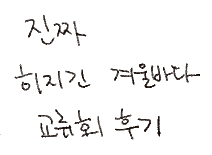 진짜
히지긴 겨울바다
교류회 후기